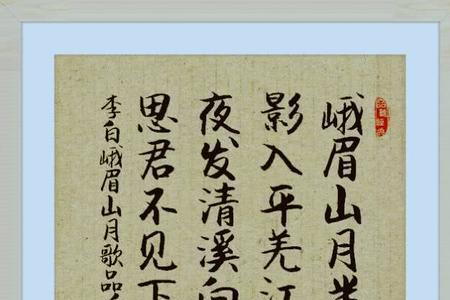 峨眉山月
影入平羌江
夜发清溪向
思君不见下
李白峨眉山月歌品